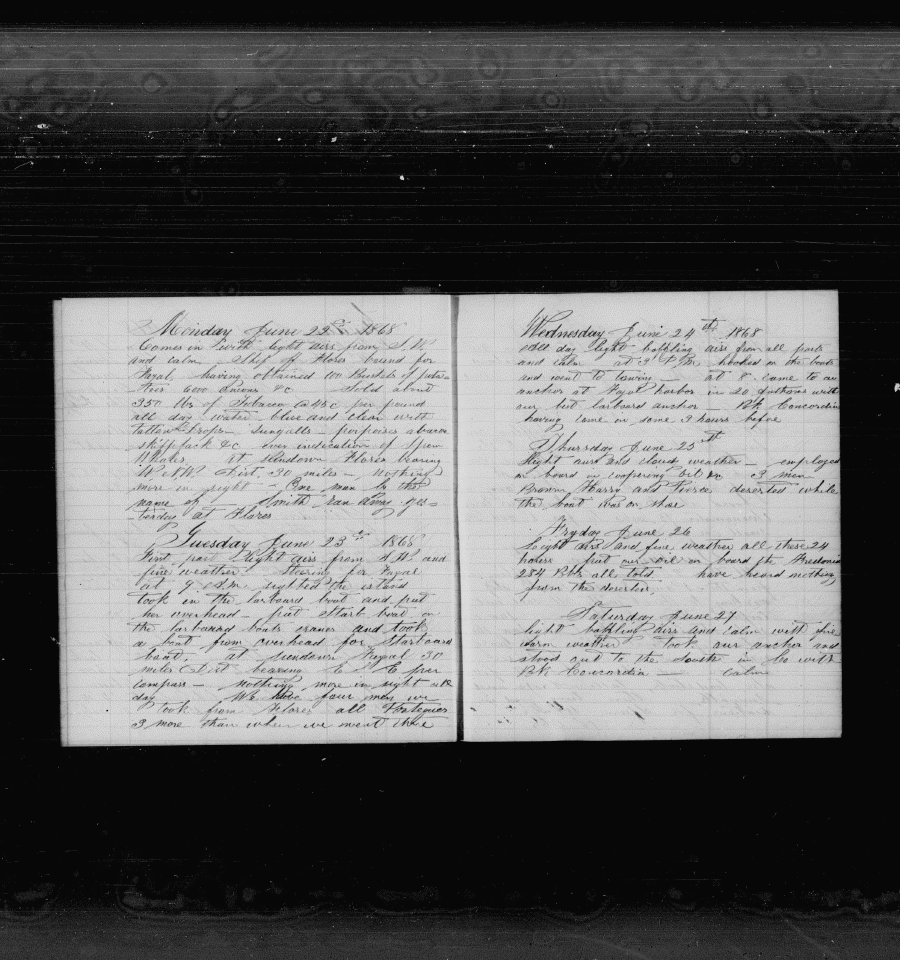 Monday June 22nd 1868
Comes in with light airs from S W
and calm Ship of Flores bound for
Fayal, having obtained 100 Bushels of pota=
toes 600 onions &c Sold about
350 lbs of Tobacco @ 45c per pound
all day water blue and clear with
Sungulls - porpoises
skipjack &c ever indication of Sperm
Whales, at sundown Flores bearing
W.N.W. Dist. 30 miles - nothing
more in sight - One man by the
name of Smith ran away yes=
terday at Flores
Tuesday June 23rd 1868
First part light airs from S.W. and
fine weather Steering for Fayal
at 9 A.M. sighted the island
took in the larboard boat and put
her overhead - put starb boat on
the larboard boats cranes and took
a boat from overhead for Starboard
boat, at sundown Fayal 30
miles Dist bearing E E per
compass - nothing more in sight all
day We have four men we
took from Flores all Porteguse
3 more than when we went there
Wednesday June 24th 1868
All day light baffling airs from all parts
and calm at 3 P.M. hooked on the boats
and went to towing at 8 came to an
anchor at Fayal harbor in 20 fathoms with
our best larboard anchor Bk Concordia
having come in some 3 hours before
Thursday June 25th
Slight airs and cloud weather - employed
on board in coopering oil 3 men
Brown Harry and Pierce deserted while
the boat was on shore
Fryday June 26
Light airs and fine weather all these 24
hours put our oil on board the Fredonia
284 Bbls all told have heard nothing
from the deserters
Saturday June 27
light baffling airs and calm with fine
warm weather took our anchor and
stood out to the South in Co with
Bk Concordia - calm